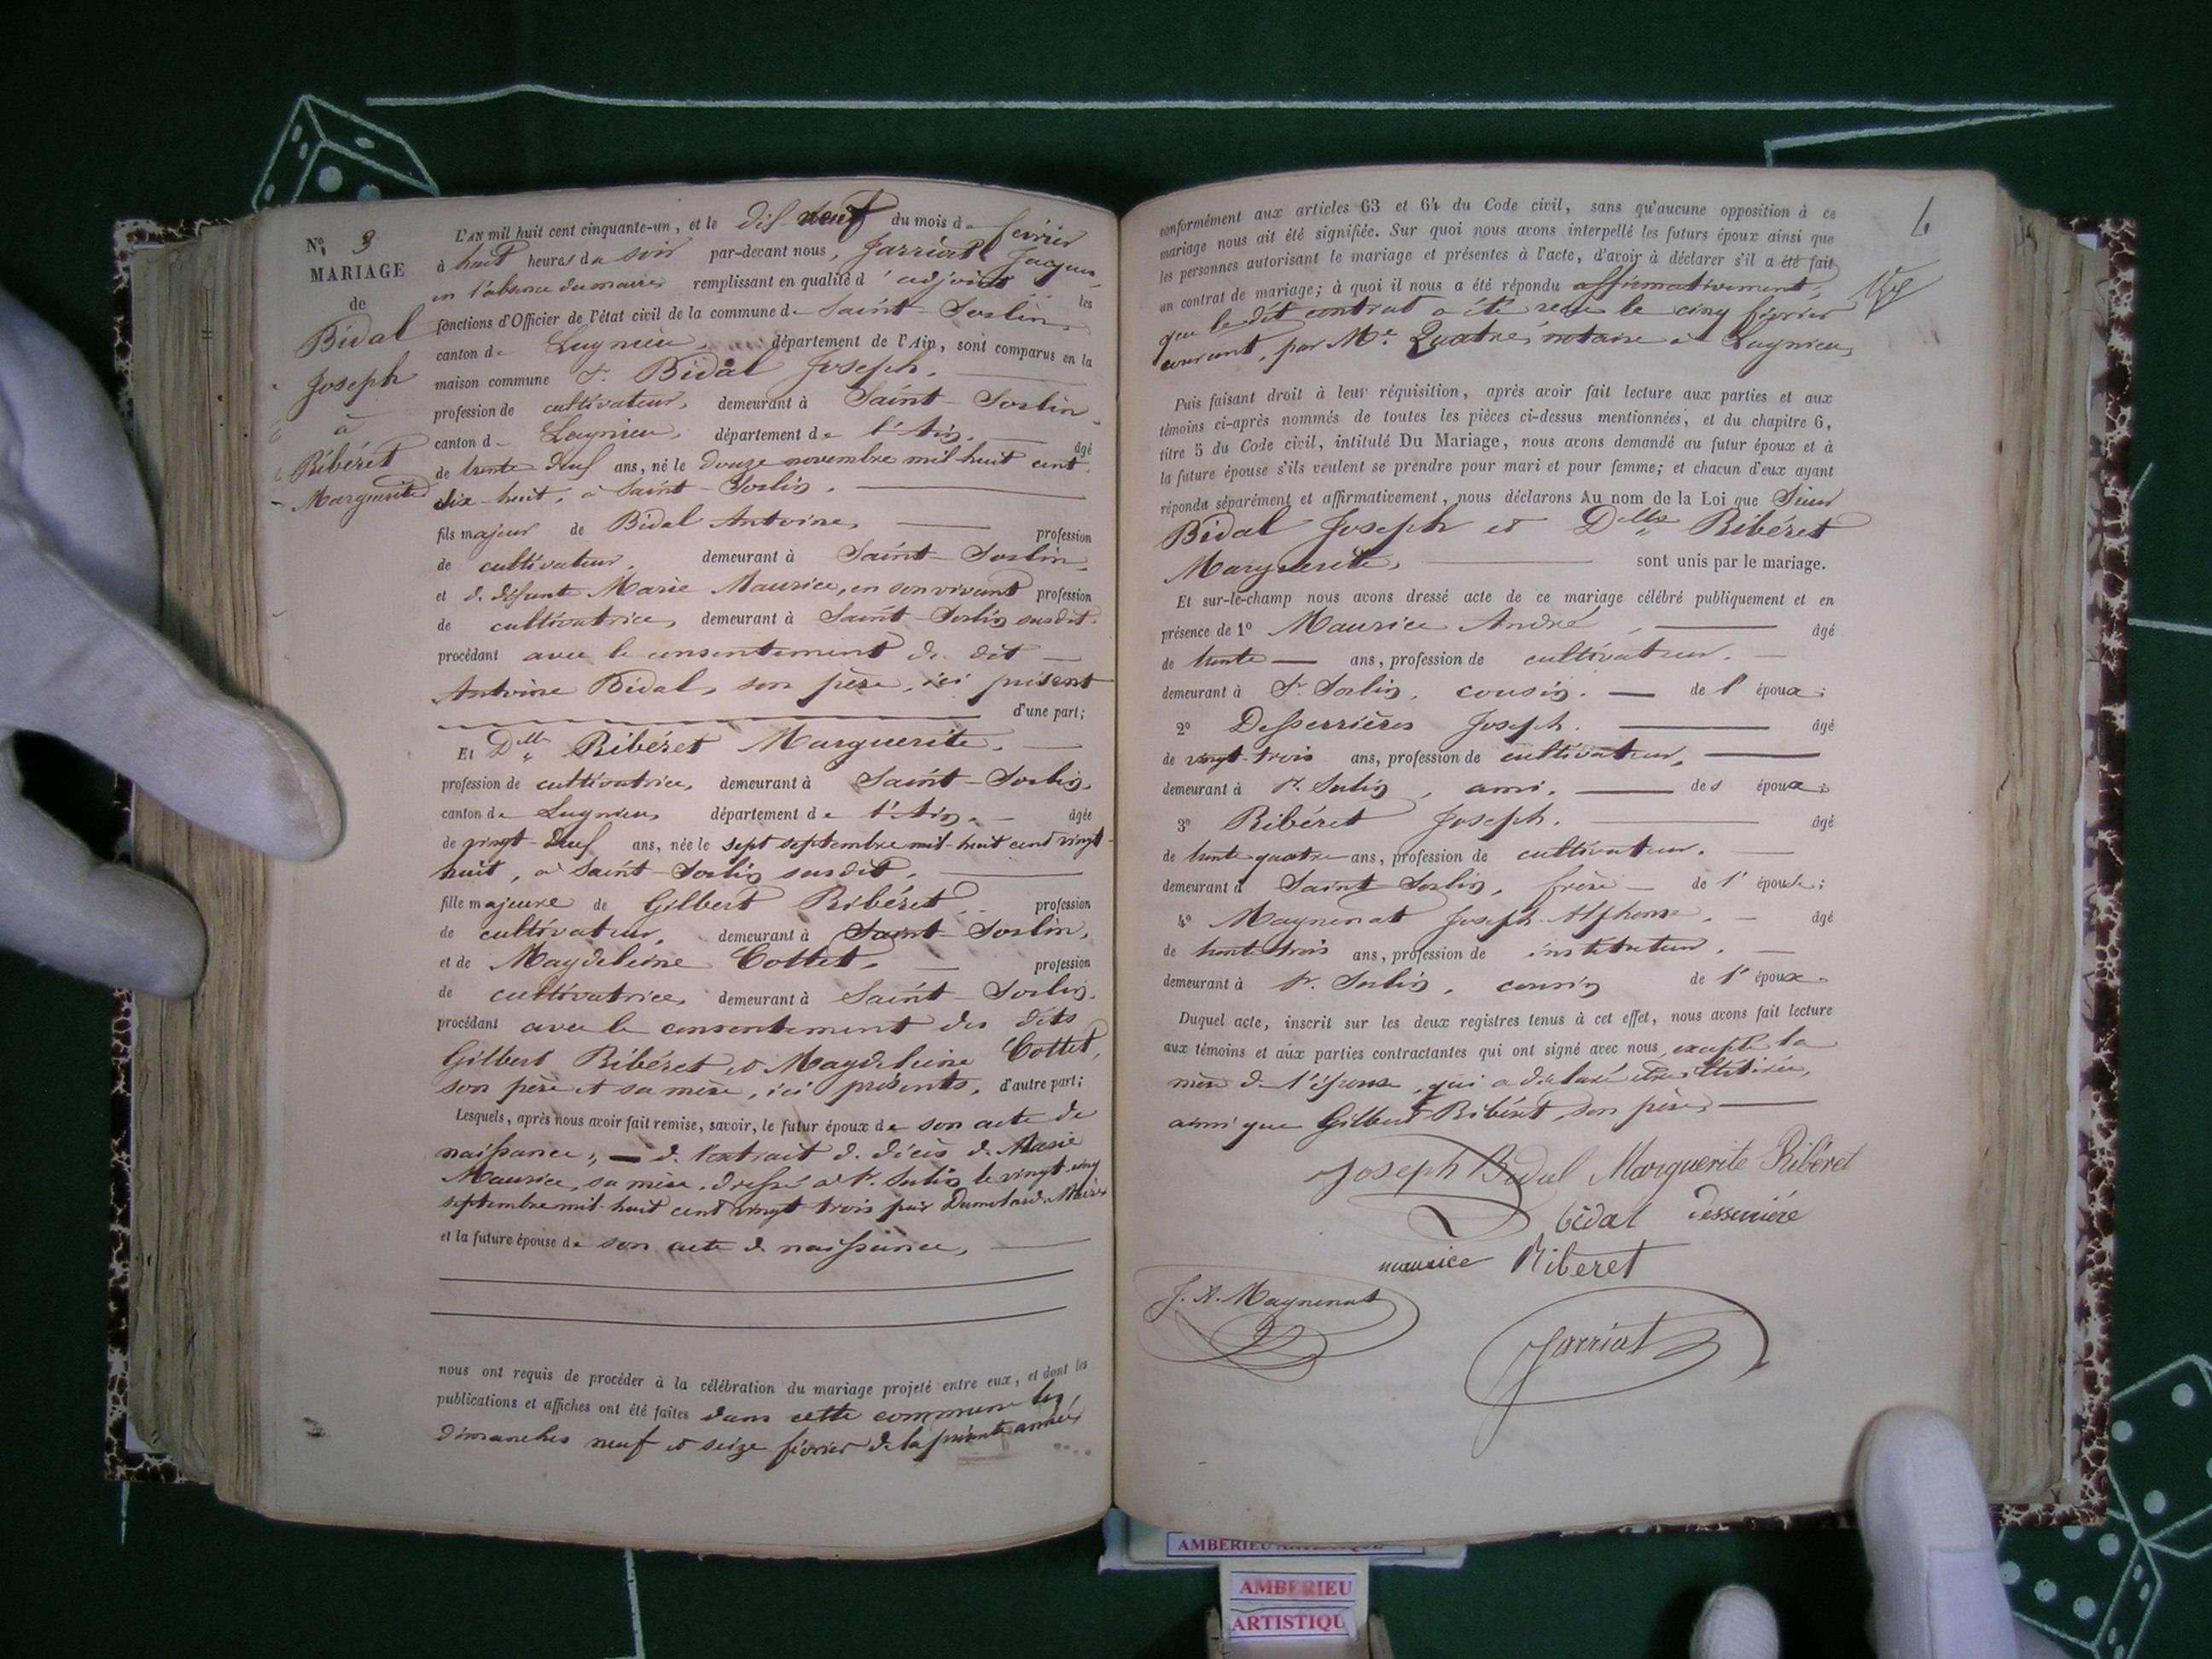 N° 3
MARIAGE
de
Bidal
Joseph
à
Ribéret
Marguerite
L'AN mil huit cent cinquante-un, et le dif neuf du mois de février
à huit heures du soir par-devant nous, Jarriat Jacques,
en l'absence du maire remplissant en qualité d'adjoint les
fonctions d'Officier de l'état civil de la commune de Saint-Sorlin,
canton de Lagnieu, département de l'Ain, sont comparus en la
maison commune Sr. Bidal Joseph,
profession de cultivateur, demeurant à Saint-Sorlin,
canton de Lagnieu, département de l'Ain, âgé
de trente deuf ans, né le douze novembre mil huit cent
dix-huit, à Saint-Sorlin,
fils majeur de Bidal Antoine, profession
de cultivateur, demeurant à Saint-Sorlin,
et d. défunte Marie Maurice, en son vivant profession
de cultivatrice, demeurant à Saint-Sorlin susdit.
procédant avec le consentement du dit
Antoine Bidal, son père, ici présent
d'une part;
Et Delle Ribéret Marguerite,
profession de cultivatrice, demeurant à Saint-Sorlin,
canton de Lagnieu, département de l'Ain, âgée
de vingt-deuf ans, née le sept septembre mil-huit cent vingt-
huit, à Saint-Sorlin susdit,
fille majeure de Gilbert Ribéret, profession
de cultivateur, demeurant à Saint-Sorlin,
et de Magdeleine Cottet, profession
de cultivatrice, demeurant à Saint-Sorlin,
procédant avec le consentement des dits
Gilbert Ribéret et Magdeleine Cottet,
son père et sa mère, ici présents, d'autre part;
Lesquels, après nous avoir fait remise, savoir, le futur époux de son acte de
naissance; d. l'extrait d. décès d. Marie
Maurice, sa mère, dressé à St. Sorlin le vingt-cinq
septembre mil-huit cent vingt trois par Dumolard, Maire
et la future épouse de son acte de naissance,
nous ont requis de procéder à la célébration du mariage projeté entre eux, et dont les
publications et affiches ont été faites dans cette commune les
dimanches neuf et seize février de la présente année
4
conformément aux articles 63 et 64 du Code civil, sans qu'aucune opposition à ce
mariage nous ait été signifiée. Sur quoi nous avons interpellé les futurs époux ainsi que
les personnes autorisant le mariage et présentes à l'acte, d'avoir à déclarer s'il a été fait
un contrat de mariage; à quoi il nous a été répondu affirmativement,
que le dit contrat a été reçu le cinq février
courant, par Me. Quatre, notaire à Lagnieu,
Puis faisant droit à leur réquisition, après avoir fait lecture aux parties et aux
témoins ci-après nommés de toutes les pièces ci-dessus mentionnées, et du chapitre 6,
titre 5 du Code civil, intitulé Du Mariage, nous avons demandé au futur époux et à
la future épouse s'ils veulent se prendre pour mari et pour femme; et chacun d'eux ayant
répondu séparément et affirmativement, nous déclarons Au nom de la Loi que Sieur
Bidal Joseph et Delle Ribéret
Marguerite, sont unis par le mariage.
Et sur-le-champ nous avons dressé acte de ce mariage célébré publiquement et en
présence de 1° Maurice André, âgé
de trente ans, profession de cultivateur,
demeurant à St. Sorlin, cousin de l'époux;
2° Desserrières Joseph, âgé
de vingt-trois ans, profession de cultivateur,
demeurant à St. Sorlin, ami, des époux;
3° Ribéret Joseph, âgé
de trente quatre ans, profession de cultivateur,
demeurant à Saint Sorlin, frère de l'épouse;
4° Magnenat Joseph-Alphonse, âgé
de trente-trois ans, profession de instituteur,
demeurant à St. Sorlin, cousin de l'époux.
Duquel acte, inscrit sur les deux registres tenus à cet effet, nous avons fait lecture
aux témoins et aux parties contractantes qui ont signé avec nous, excepté la
mère de l'épouse, qui a déclaré être illitérée,
ainsi que Gilbert Ribéret, son père,
Joseph Bidal Marguerite Ribéret
bidal desseriére
maurice Riberet
J. A. Magnenat
Jarriat
AMBERIEU ARTISTIQUE
AMBERIEU
ARTISTIQU